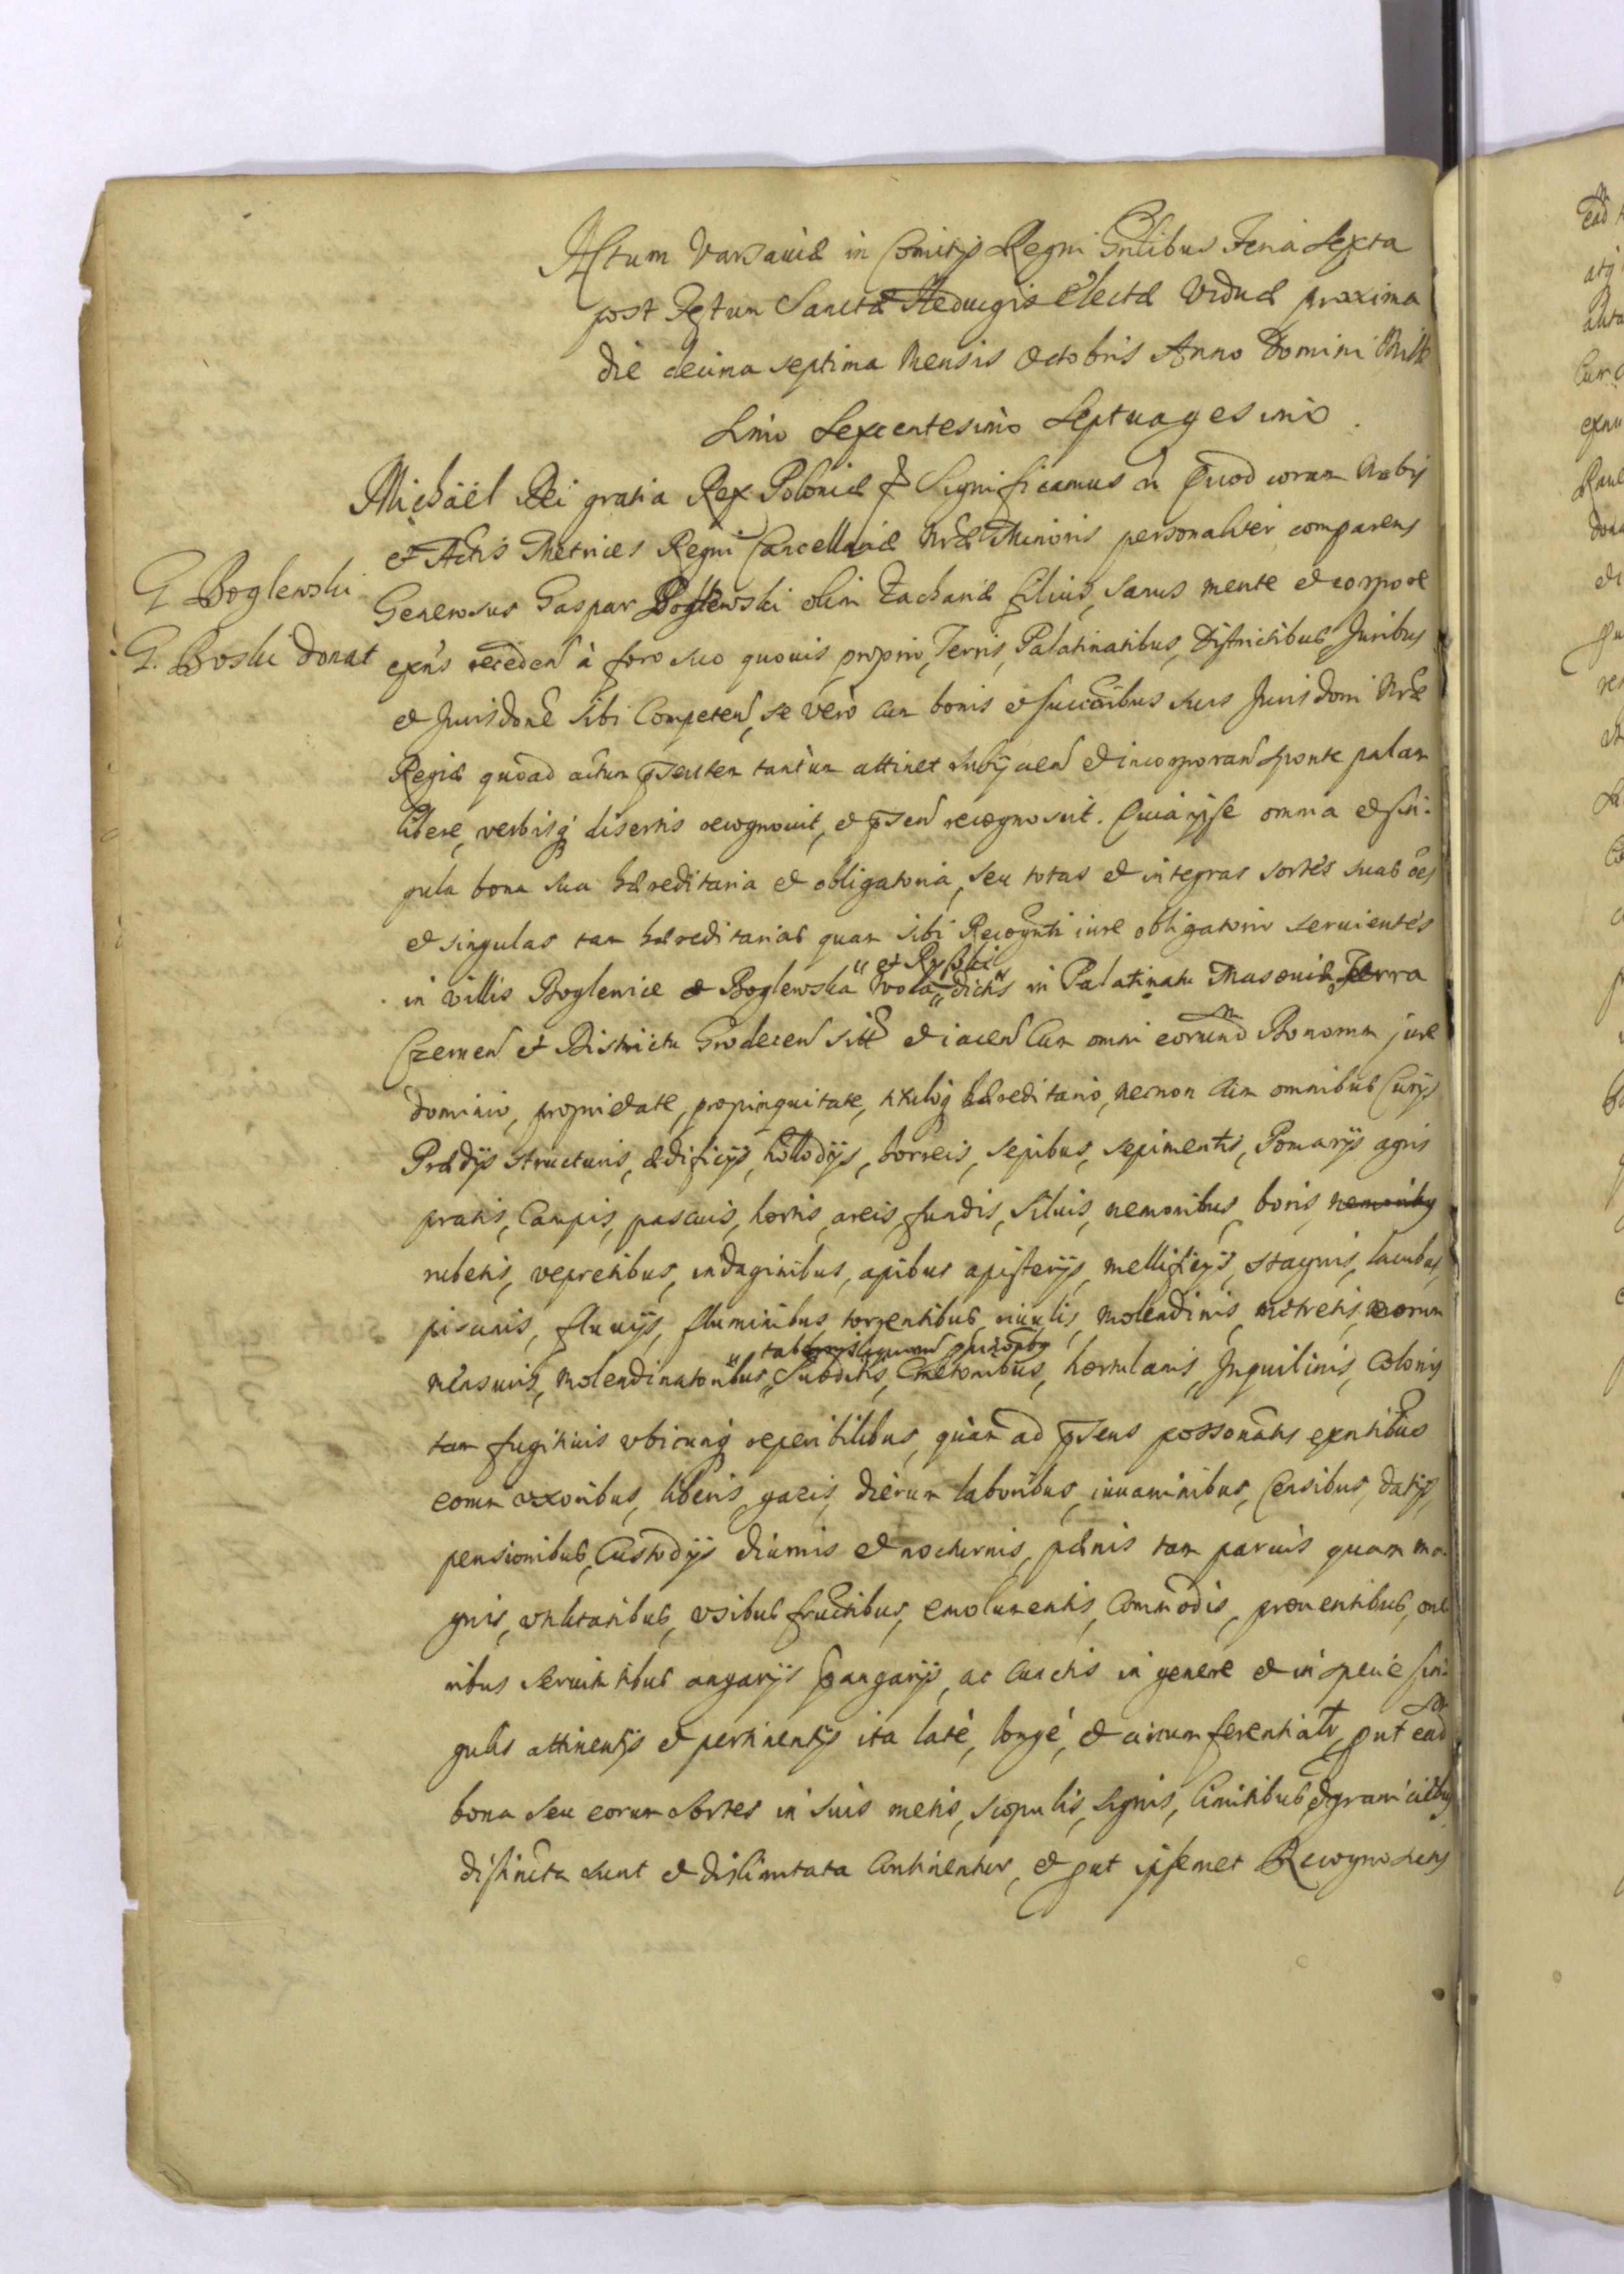 Actum Varsaviæ in Comitijs Regni Gnlibus Feria Sexta
post Festum Sanctæ Hedvigis Electæ Viduæ proxima
die decima septima Mensis Octobris Anno Domini Mille
simo Sexcentesimo Septuagesimo.
Michaël Dei gratia Rex Poloniæ & Significamus Quod coram Nobis
et Actis Metrices Regni Cancellariæ Nræ Minoris personaliter comparens
G Boglewski
Generosus Gaspar Boglewski olim Zachariæ filius, sanus mente et corpore
G. Boski donat
exns receden à foro suo quovis proprio, Terris, Palatinatibus, Districtibus, Juribus
et Jurisdone sibi Competen, se vero cum bonis et succoribus suis Jurisdoni Nræ
Regiæ quoad actum psentem tantum attinet subijcien et incorporan sponte palam
libere, verbisq disertis recognovit, et psen recognoscit. Quia ipse omnia et sin-
gula bona sua hæreditaria et obligatoria, seu totas et integras sortes suas oes
et singulas tam hæreditarias quam sibi Recognti iure obligatorio servientes
et Rykski
in villis Boglewice et Boglewska Wola dictis in Palatinatu Masoviæ Terra
Czernen et Districtu Grodecen sitt et iacen Cum omni eorund Bonorum jure
dominio, proprietate, propinquitate, tituloq hæreditario, necnon cum omnibus Curijs
Prædijs structuris, ædificijs, hollodijs, horreis, sepibus, sepimentis, Pomarijs agris
pratis, Campis, pascuis, hortis, areis, fundis, silvis, nemoribus, boris, nemoribq
rubetis, vepretibus, indaginibus, apibus apisterijs, mellificijs, stagnis, lacubus,
piscinis, fluvijs, fluminibus torrentibus, rivulis, molendinis, metretis, eorum
mensuris, molendinatoribus, Subditis, Cmetonibus, hortulanis, Inquilinis, Colonis
tam fugitivis ubicunq reperibilibus, quam ad psens possonatis exntibus
eorum uxoribus, liberis, gazis, dierum laboribus, iuvaminibus, Censibus, datijs,
pensionibus, Custodijs diurnis et nocturnis, pænis tam parvis quam ma-
gnis, utilitatibus, usibus fructibus, emolumentis, Commodis, proventibus, one
ribus servitutibus angarijs pangarijs, ac cunctis in genere et in specie sin-
gulis attinentijs et pertinentijs ita late, longe, et circumferentialr, put ead
bona seu eorum sortes in suis metis, scopulis, signis, limitibus, et granicicbus
distincta sunt et dislimitata continentur, et put ipsemet Recognoscens